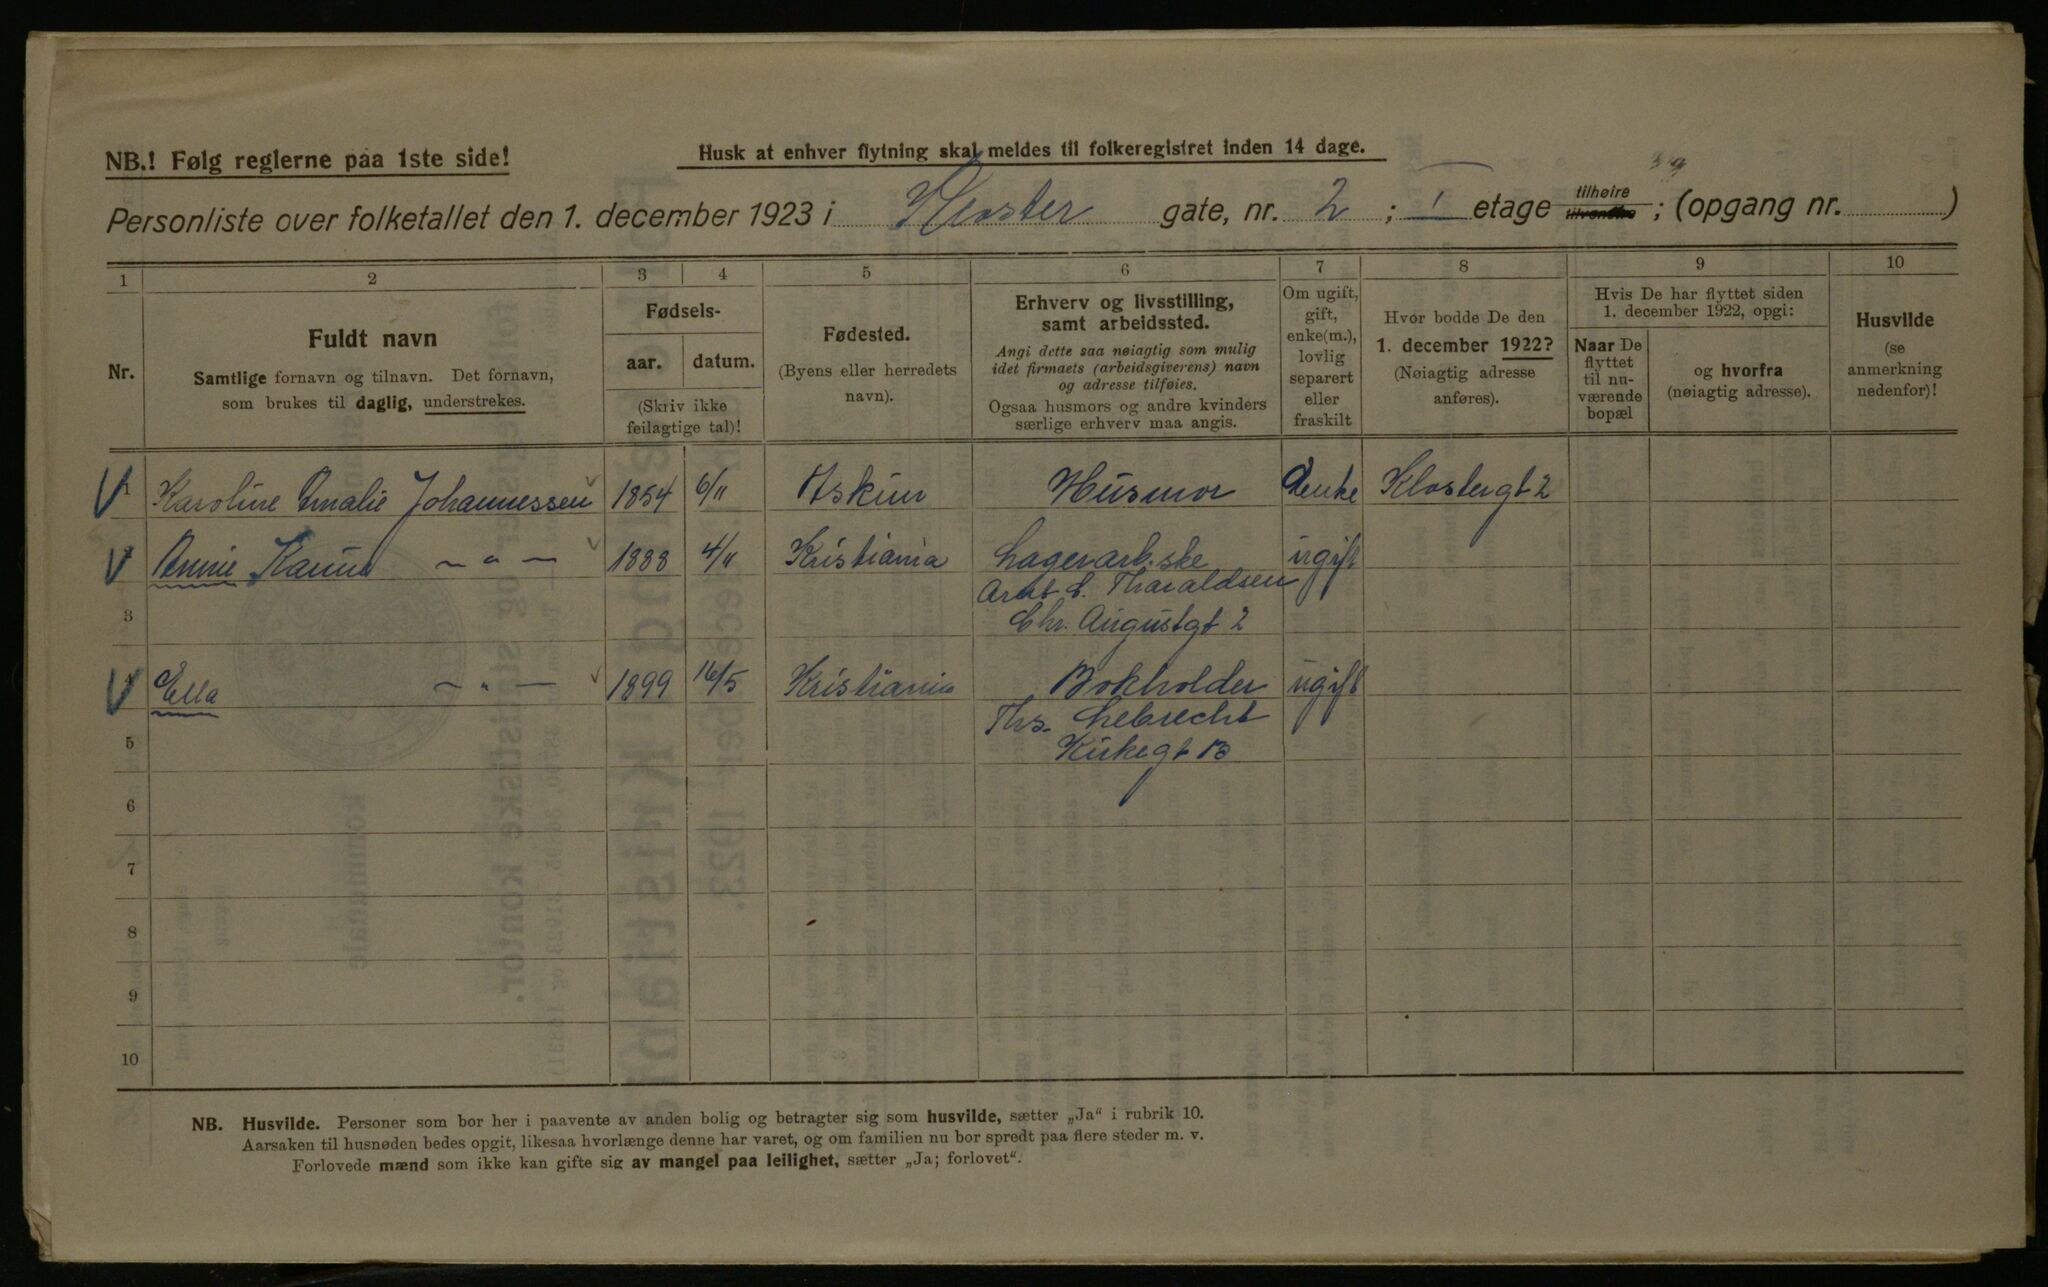 NB.! Følg reglerne paa 1ste side!
Husk at enhver flytning skal meldes til folkeregistret inden 14 dage.
Personliste over folketallet den 1. december 1923 i Kloster gate, nr. 2 ; I etage tilhøire tilvenstre ; (opgang nr. )
1 2 3 4 5 6 7 8 9 10
Nr.
Fuldt navn
Samtlige fornavn og tilnavn. Det fornavn,
som brukes til daglig, understrekes.
Fødsels-
aar. datum.
(Skriv ikke
feilagtige tal)!
Fødested.
(Byens eller herredets
navn).
Erhverv og livsstilling,
samt arbeidssted.
Angi dette saa nøiagtig som mulig
idet firmaets (arbeidsgiverens) navn
og adresse tilføies.
Ogsaa husmors og andre kvinders
særlige erhverv maa angis.
Om ugift,
gift,
enke(m.),
lovlig
separert
eller
fraskilt
Hvor bodde De den
1. december 1922?
(Nøiagtig adresse
anføres).
Hvis De har flyttet siden
1. december 1922, opgi:
Naar De
flyttet
til nu-
værende
bopæl
og hvorfra
(nøiagtig adresse).
Husvilde
(se
anmerkning
nedenfor)!
1 Karoline Amalie Johannessen 1854 6/11 Askim Husmor enke Klostergt 2
Annie Karine — " — 1888 4/11 Kristiania Lagerarb.ske ugift
Arbt C. Tharaldsen
3 Chr. Augustgt 2
4 Ella — " — 1899 16/5 Kristiania Bokholder ugift
Ths. Lebrecht
5 Kirkegt 13
6
7
8
9
10
NB. Husvilde. Personer som bor her i paavente av anden bolig og betragter sig som husvilde, sætter „Ja" i rubrik 10.
Aarsaken til husnøden bedes opgit, likesaa hvorlænge denne har varet, og om familien nu bor spredt paa flere steder m. v.
Forlovede mænd som ikke kan gifte sig av mangel paa leilighet, sætter „Ja; forlovet".